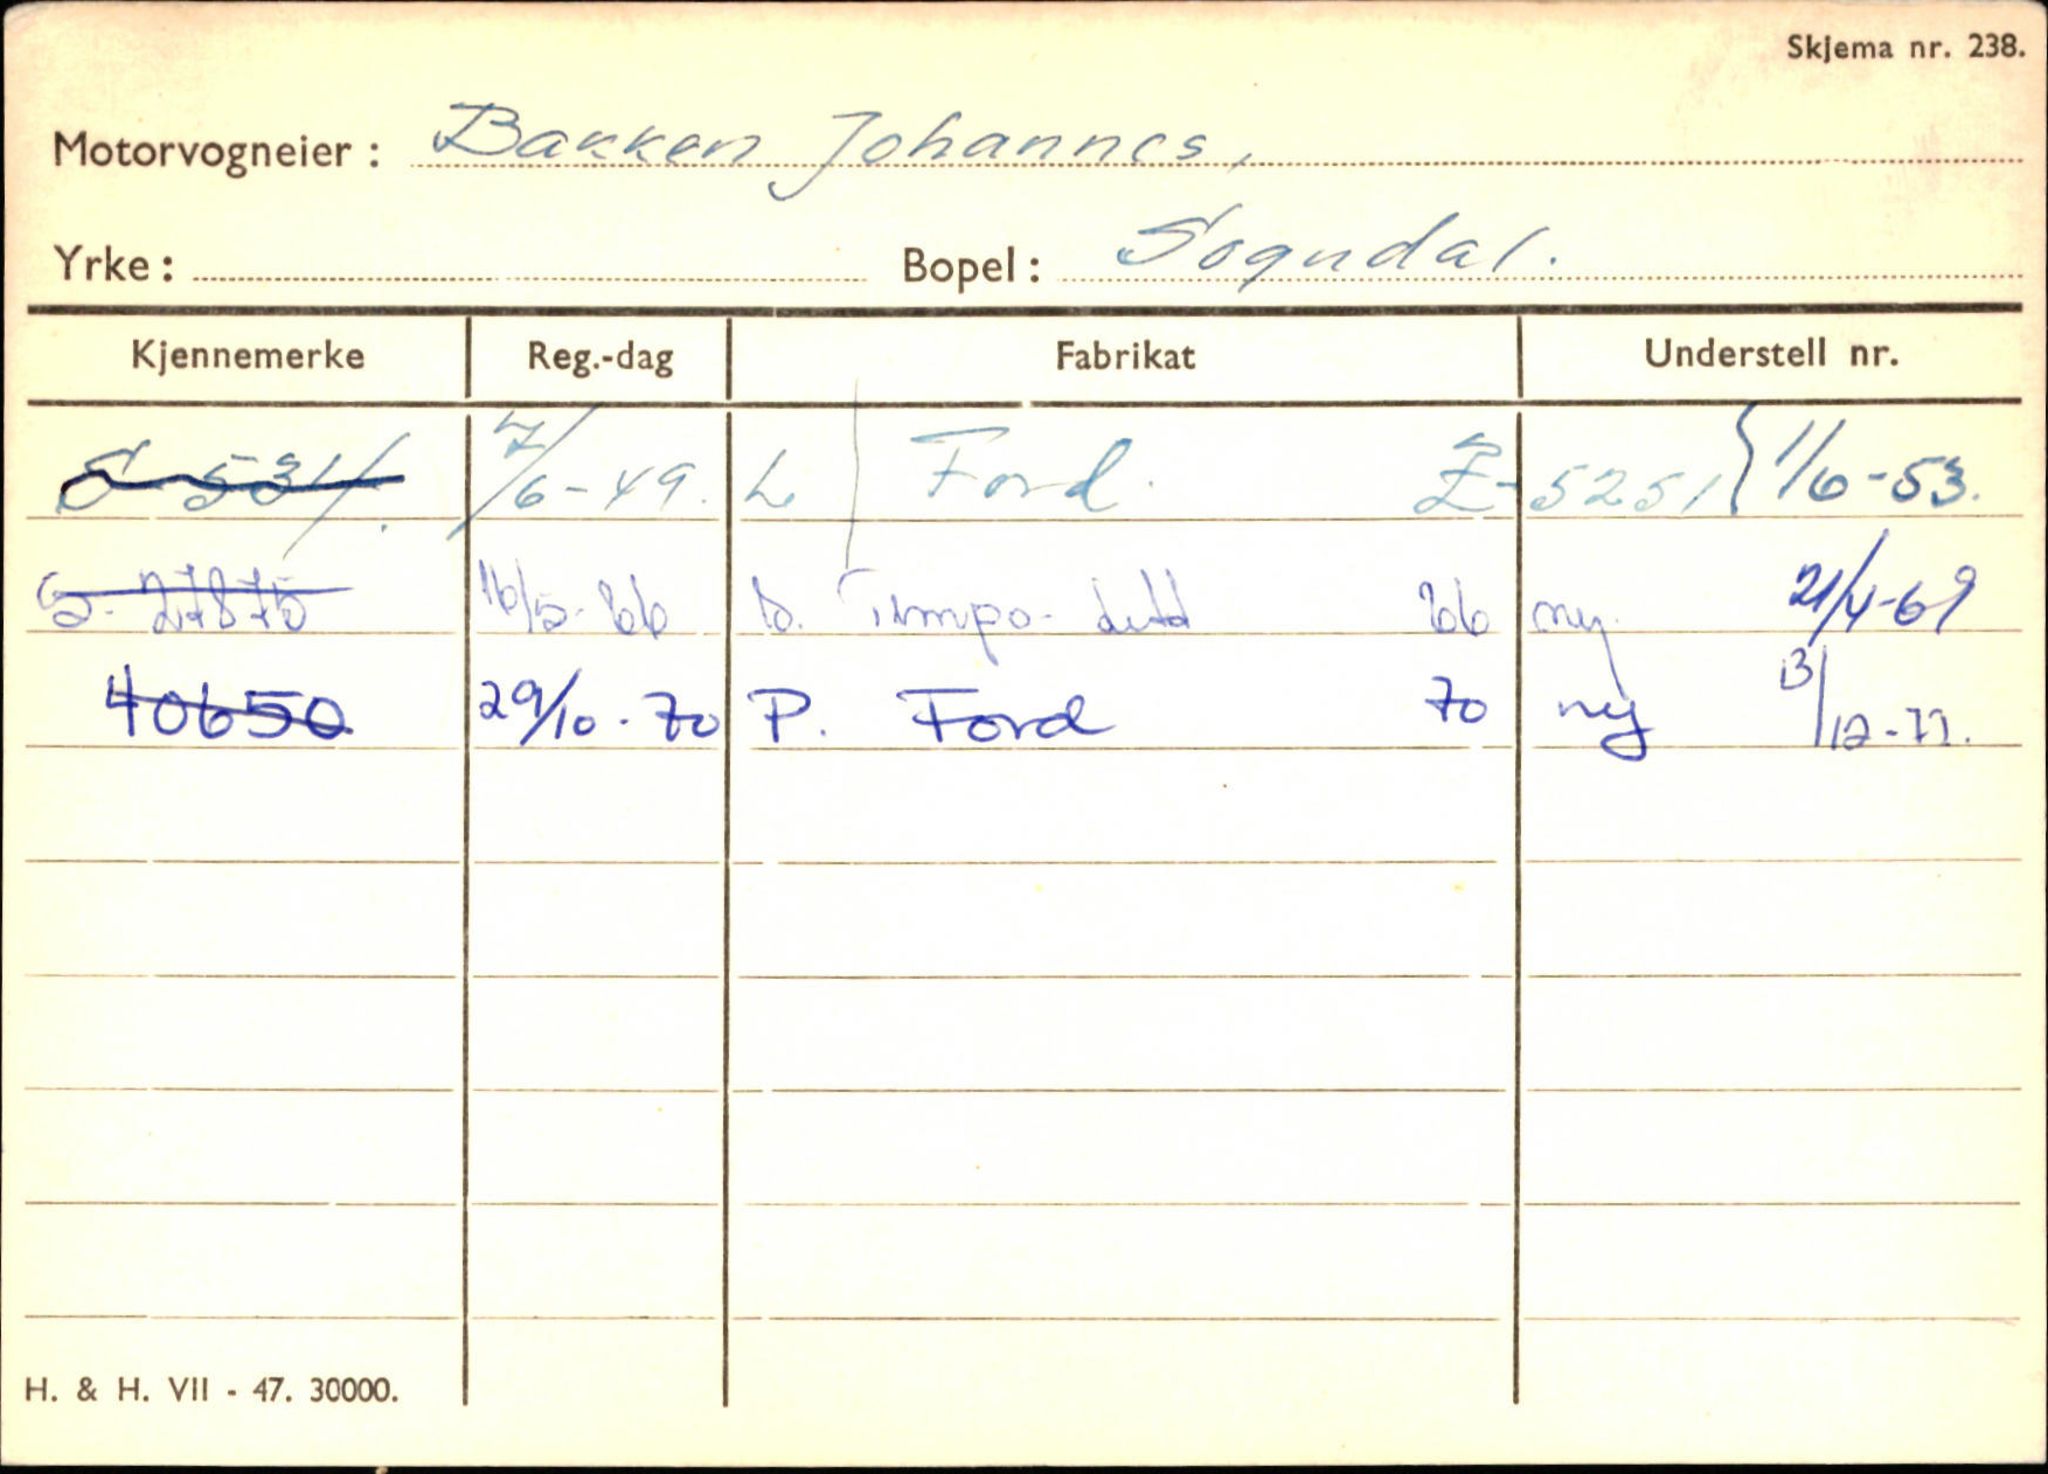 Skjema nr. 238.
Motorvogneier : Bakken Johannes,
Yrke : Bopel : Sogndal.
Kjennemerke Reg.-dag Fabrikat Understell nr.
S-531 7/6-49. L Ford. Z-5251 1/6-53.
S-27875 16/5-66 D. Tempo- 66 ny 21/4-69
40650 29/10-70 P. Ford 70 ny 13/12-77.
H. & H. VII - 47. 30000.